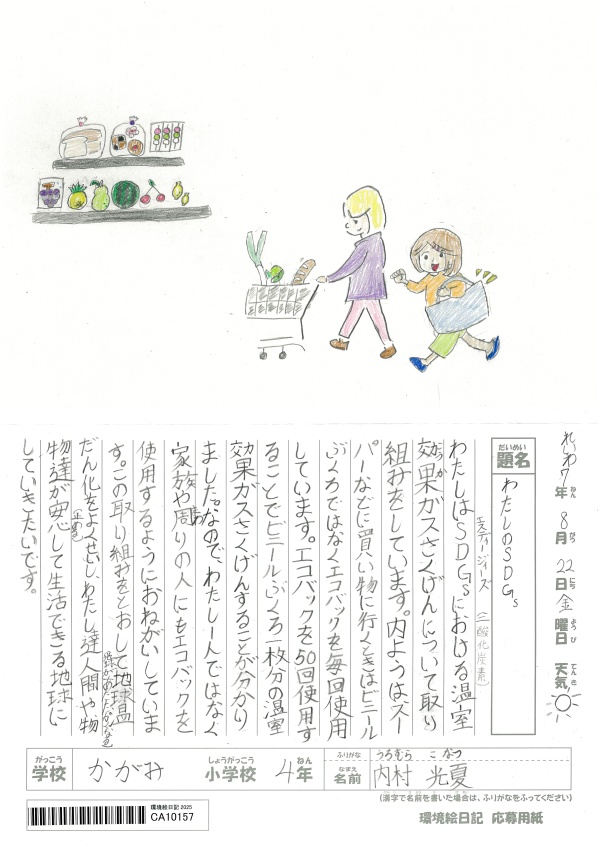 れいわ7年ねん 8月がつ 22日にち 金曜日ようび 天気てんき
だいめい
題名
わたしのSDGs
エスディージーズ
(二酸化炭素)
わたしはSDGsにおける温室
効果ガスさくげんについて取り
こうか
組みをしています。内ようはスー
パーなどに買い物に行くときはビニール
ぶくろではなくエコバックを毎回使用
しています。エコバックを50回使用す
ることでビニールぶくろ一枚分の温室
効果ガスさくげんすることが分かり
ました。なので、わたし一人ではなく
家族や周りの人にもエコバックを
まわ
使用するようにおねがいしていま
す。この取り組みをとおして地球温
だん化をよくせいし、わたし達人間や物
(止める)
物達が安心して生活できる地球に
していきたいです。
がっこう
学校
かがみ
しょうがっこう
小学校
4年ねん
ふりがな
うちむら こなつ
なまえ
名前
内村 光夏
(漢字で名前を書いた場合は、ふりがなをふってください)
環境絵日記 2025
CA10157
環境絵日記 応募用紙